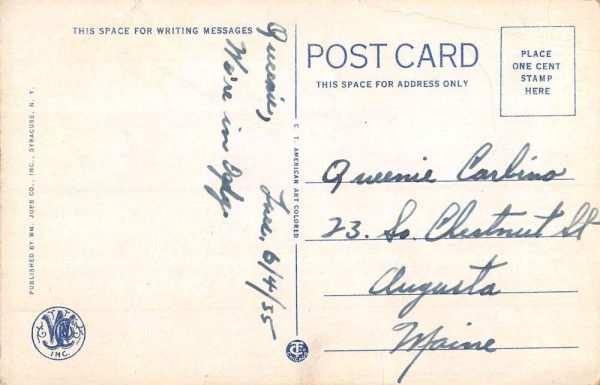 THIS SPACE FOR WRITING MESSAGES
Queenie,
We're in Ogdg.
Tues. 6/4/35
PUBLISHED BY WM. JUBB CO., INC., SYRACUSE, N. Y.
C. T. AMERICAN ART COLORED
POST CARD
THIS SPACE FOR ADDRESS ONLY
PLACE
ONE CENT
STAMP
HERE
Queenie Carbino
23. So. Chestnut St
Augusta
Maine
INC.